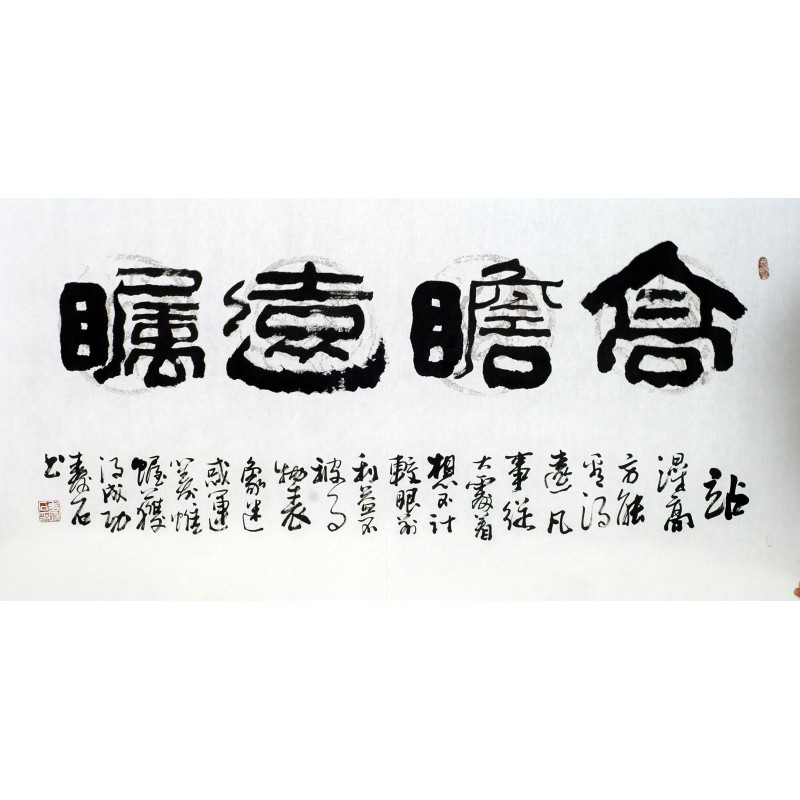 高瞻遠矚
站
得高
方能
看得
遠凡
事從
大處着
想不計
較眼前
利益不
被事
物表
象迷
惑運
籌帷
幄獲
得成功
壽石
书